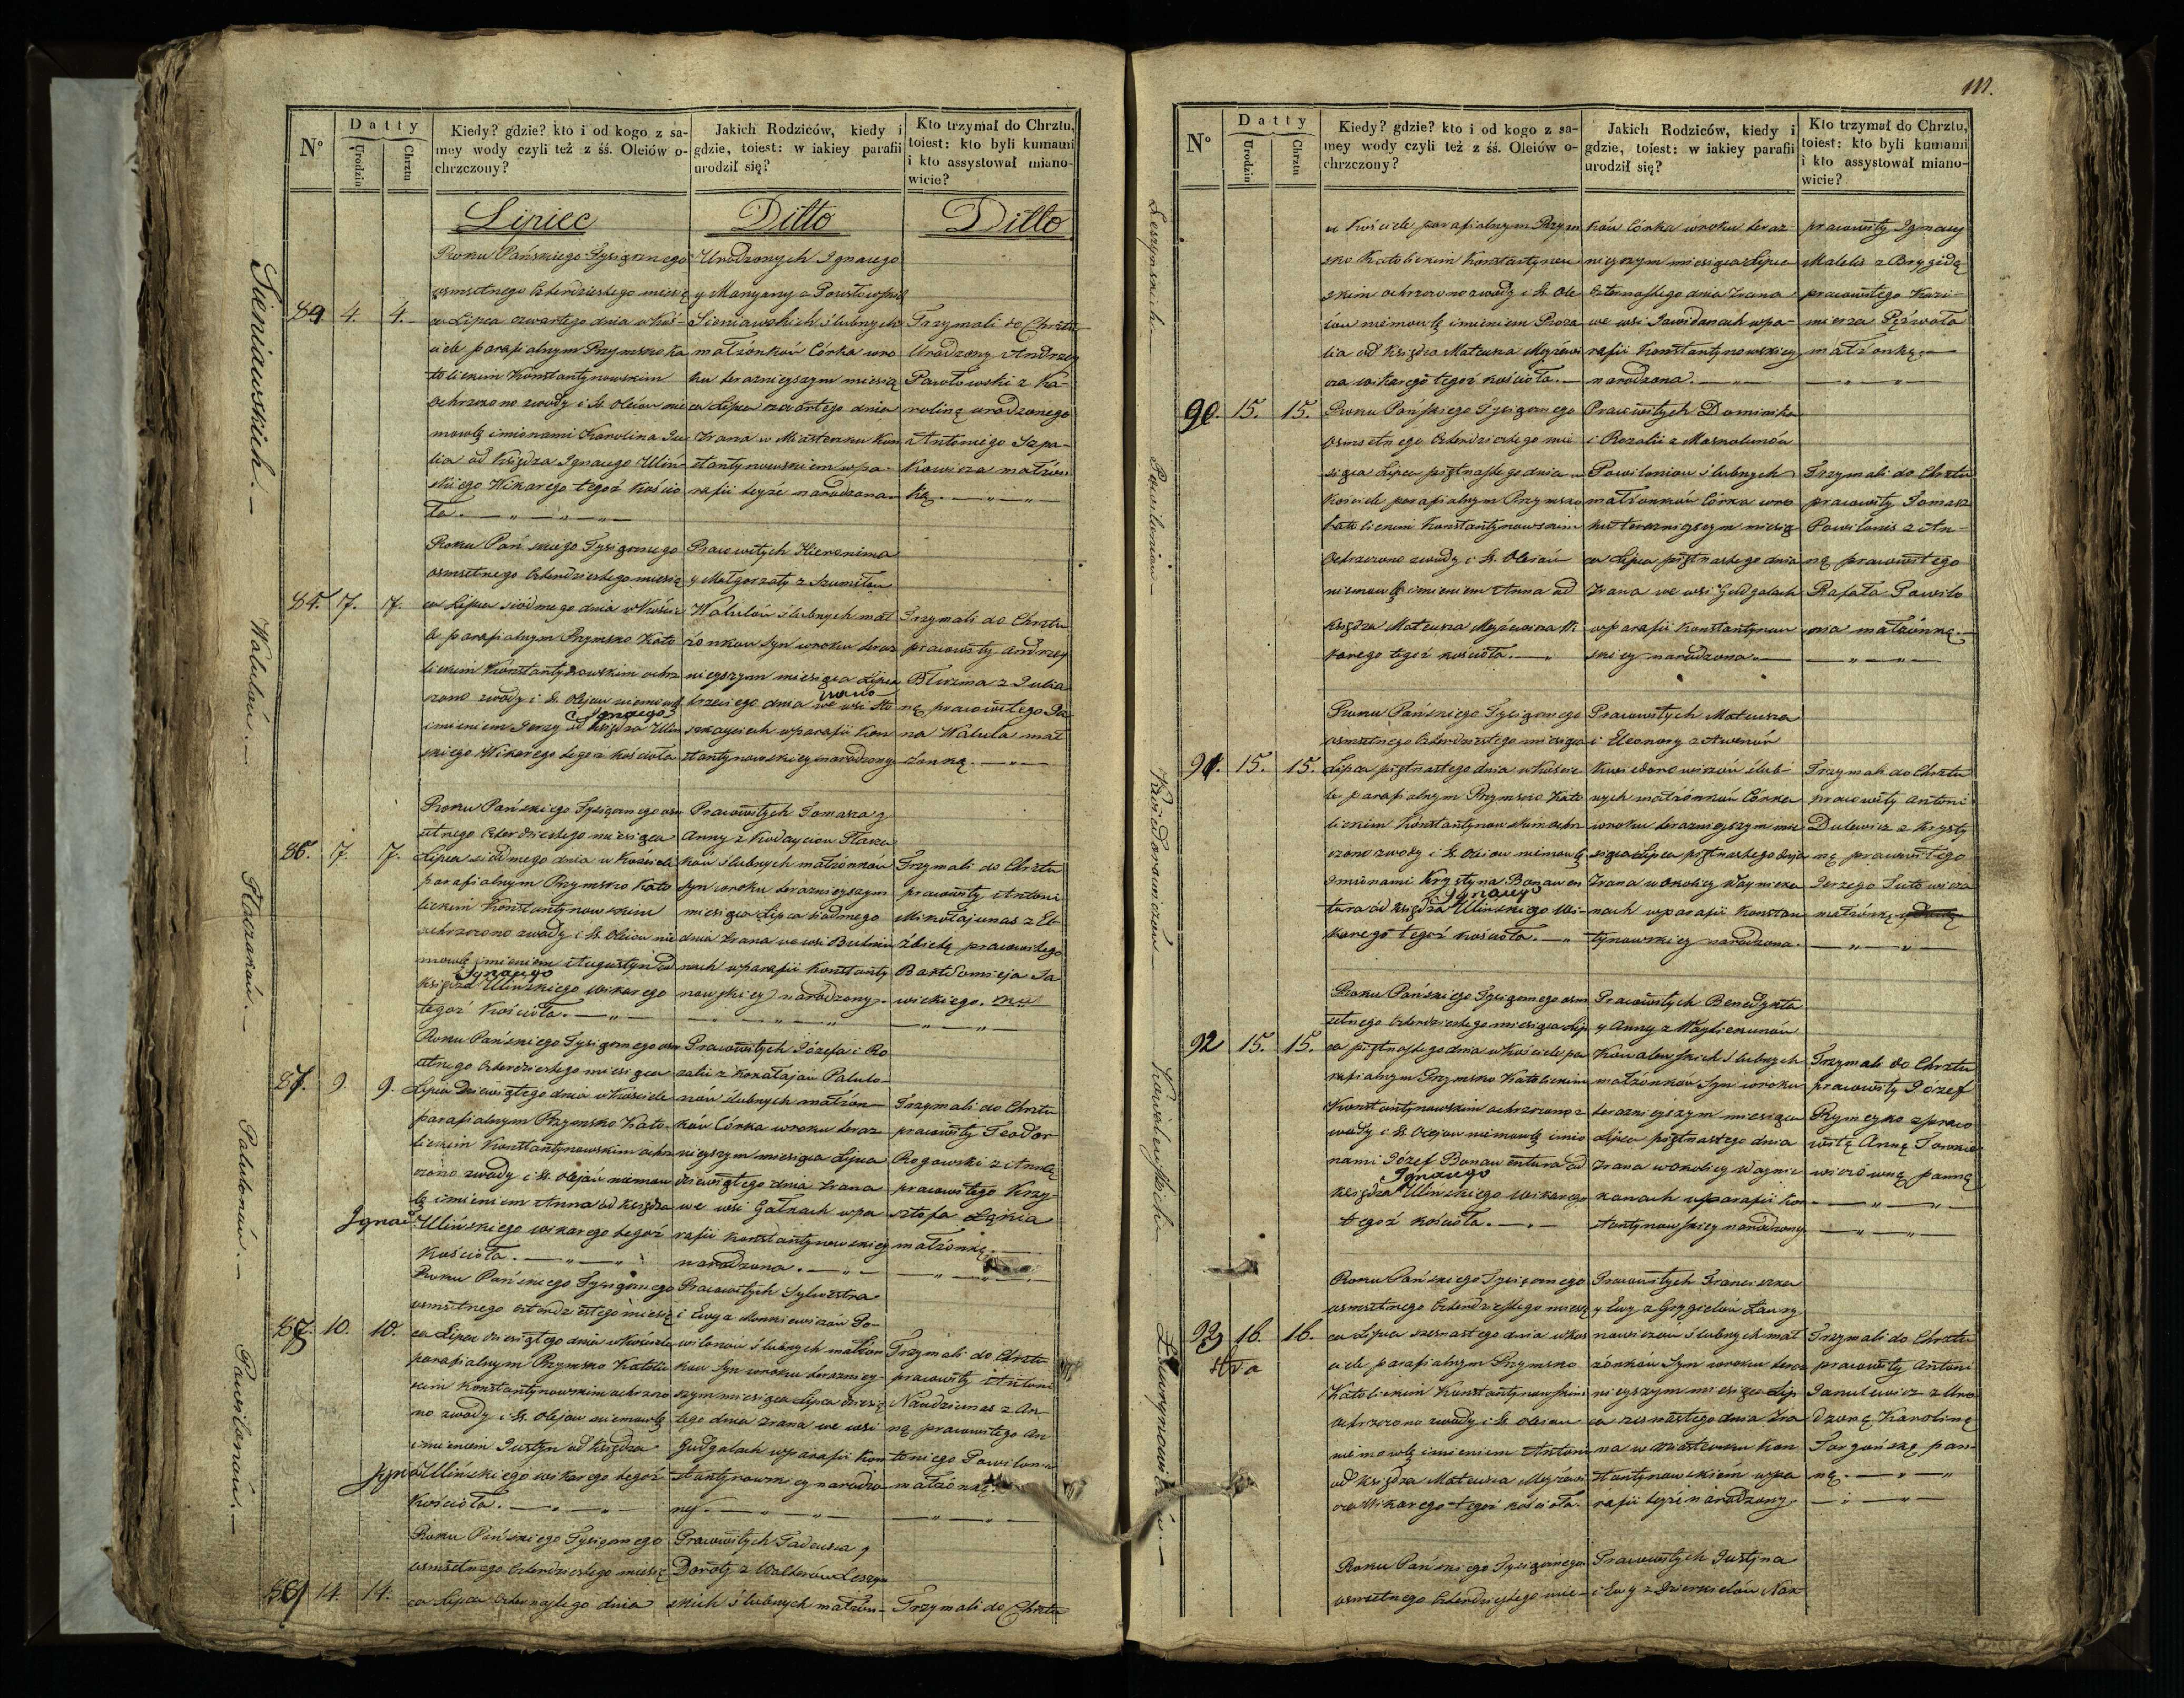 N°
Datty
Urodzin
Chrztu
Kiedy? gdzie? kto i od kogo z sa-
mey wody czyli też z śś. Oleiów o-
chrzczony?
Jakich Rodziców, kiedy i
gdzie, toiest: w iakiey parafii
urodził się?
Kto trzymał do Chrztu,
toiest: kto byli kumami
i kto assystował miano-
wicie?
Lipiec
Ditto
Ditto
Sieniawskich.—
84 4. 4.
Roku Pańskiego Tysiącznego
osmsetnego czterdziestego miesią
ca Lipca czwartego dnia w Koś-
ciele parafialnym Rzymsko Ka
tolickim Konstantynowskim
ochrzczono zwody i S. Oleiów nie
mowlę imionami Karolina Ju
lia od Księdza Ignacego Uliń-
skiego Wikarego tegoż Koscio
ła.
Urodzonych Ignacego
y Maryanny z Pawłowskich
Sieniawskich ślubnych
małżonków Córka wro
ku teraznieyszym miesią
ca Lipca czwartego dnia
zrana w Miasteczku Kon
stantynowskiem wpa-
rafii teyże narodzona
Trzymali do Chrztu
Urodzony Andrzey
Pawłowski z Ka-
roliną urodzonego
Antoniego Szpa-
kowicza małżon
ką.
Walulów.—
85. 7. 7.
Roku Pańskiego Tysiącznego
osmsetnego czterdziestego miesią
ca Lipca siódmego dnia w Koście
le parafialnym Rzymsko Kato
lickim Konstantynowskim ochrz
czono zwody i S. Olejow niemowlę
imieniem Jerzy od księdza Ignacego Uliń
skiego Wikarego tegoż kościoła
Pracowitych Hieronima
y Małgorzaty z Szumiłow
Walulów ślubnych mał
żonkow Syn wroku teraz
nieyszym miesiąca Lipca
trzeciego dnia zrana we wsi Sto
wparafii Kon
stantynowskiey narodzony
Trzymali do Chrztu
pracowity Andrzey
z Julia
ną pracowitego Ja
na Walula mał
żonką.
Tkaczaków.—
86. 7. 7.
Roku Pańskiego Tysiącznego osm
setnego czterdziestego miesiąca
Lipca siódmego dnia w Kościele
parafialnym Rzymsko Kato
lickim Konstantynowskim
ochrzczono zwody i S. Oleiow nie
mowlę imieniem Augustyn od
księdza Ignacego Ulińskiego Wikarego
tegoż Kościoła.
Pracowitych Tomasza y
Anny z Tkacza
ków ślubnych małżonków
Syn wroku teraznieyszym
miesiąca Lipca siódmego
dnia zrana we wsi Butniu
nach wparafii Konstanty
nowskiey narodzony.
Trzymali do Chrztu
pracowity Antoni
Mikołajunas z El-
żbietą pracowitego
Bartłomieja Sa
wickiego.
Palulonów.—
87. 9 9.
Roku Pańskiego Tysiącznego osm
setnego czterdziestego miesiąca
Lipca Dziewiątego dnia w Kościele
parafialnym Rzymsko Kato-
lickim Konstantynowskim ochrz
czono zwody i S. Olejów niemow
lę imieniem Anna od księdza
Ignac Ulińskiego wikarego tegoż
Kościoła.
Pracowitych Józefa i Ro
zalii z Kołłątajów Palulo-
nów ślubnych małżon-
ków Córka wroku teraz
nieyszym miesiąca Lipca
dziewiątego dnia zrana
we wsi Gałkach wpa
rafii Konstantynowskiey
narodzona.
Trzymali do Chrztu
pracowity Teodor
Rogowski z Anną
pracowitego Krzy-
sztofa
małżonką.
Pawilonów.—
88. 10. 10.
Roku Pańskiego Tysiącznego
osmsetnego czterdziestego miesią
ca Lipca dziesiątego dnia w Kościele
parafialnym Rzymsko Katolic
kim Konstantynowskim ochrzczo
no zwody i S. Olejow niemowlę
imieniem Justyn od Księdza
Igna Ulińskiego wikarego tegoż
Kościoła.
Pracowitych Sylwestra
i Ewy z Monkiewiczów Pa-
wilonow ślubnych małżon
kow Syn wroku terazniey-
szym miesiąca Lipca dziesią
tego dnia zrana we wsi
Gudgalach wparafii Kon
stantynowskiey narodzo
ny.
Trzymali do Chrztu
pracowity Antoni
Naudziunas z An-
ną pracowitego An
toniego Pawilona
małżonką.
89 14. 14.
Roku Pańskiego Tysiącznego
osmsetnego czterdziestego miesią
ca Lipca czternastego dnia
Pracowitych Tadeusza y
Doroty z Walterów Leszyn
skich ślubnych małżon-
Trzymali do Chrztu
111.
N°
Datty
Urodzin
Chrztu
Kiedy? gdzie? kto i od kogo z sa-
mey wody czyli też z śś. Oleiów o-
chrzczony?
Jakich Rodziców, kiedy i
gdzie, toiest: w iakiey parafii
urodził się?
Kto trzymał do Chrztu,
toiest: kto byli kumami
i kto assystował miano-
wicie?
Leszynskich.—
w Kościele parafialnym Rzym
sko Katolickim Konstantynow
skim ochrzczono zwody i S. Ole
iów niemowlę imieniem Roza
lia od Księdza Mateusza Myżewi
cza wikarego tegoż kościoła.
ków Córka wroku teraz-
nieyszym miesiąca Lipca
czternastego dnia zrana
we wsi Jawidanach wpa-
rafii Konstantynowskiey
narodzona.
pracowity Ignacy
Malelis z Brygidą
pracowitego Kazi-
mierza
małżonką.
Pawilonów.—
90. 15. 15.
Roku Pańskiego Tysiącznego
osmsetnego czterdziestego mie
siąca Lipca piętnastego dnia w
Kościele parafialnym Rzymsko
katolickim Konstantynowskim
ochrzczono zwody i S. Oleiów
niemowlę imieniem Anna od
księdza Mateusza Myżewicza Wi
karego tegoż kościoła.
Pracowitych Dominika
i Rozalii z Maskolunów
Pawilonow ślubnych
małżonków Córka wro
ku teraznieyszym miesią
ca Lipca piętnastego dnia
zrana we wsi Gudgalach
wparafii Konstantynow
skiey narodzona.
Trzymali do Chrztu
pracowity Tomasz
Pawilonis z An-
ną pracowitego
Rafała Pawilo
nia małżonką.
Kwiedorowiczów.—
91. 15. 15.
Roku Pańskiego Tysiącznego
osmsetnego czterdziestego miesiąca
Lipca piętnastego dnia w Koście
le parafialnym Rzymsko Kato
lickim Konstantynowskim ochrz
czono zwody i S. Oleiow niemowlę
imionami Krystyna Bonawen
tura od księdza Ignacego Ulińskiego Wi-
karego tegoż kościoła.
Pracowitych Mateusza
i Eleonory z
ślub-
nych małżonków Córka
wroku teraznieyszym mie
siąca Lipca piętnastego dnia
zrana w okolicy Waynicka
nach wparafii Konstan
tynowskiey narodzona.
Trzymali do Chrztu
pracowity Antoni
Dulewicz z Krysty
ną pracowitego
Jerzego Sutowicza
małżonką
Kowalewskich.—
92 15. 15.
Roku Pańskiego Tysiącznego osm
setnego czterdziestego miesiąca Lip
ca piętnastego dnia w Kościele pa
rafialnym Rzymsko Katolickim
Konstantynowskim ochrzczono z
wody i S. Olejow niemowlę imio
nami Józef Bonawentura od
księdza Ignacego Ulińskiego Wikarego
tegoż kościoła.
Pracowitych Benedykta
y Anny z
Kowalewskich ślubnych
małżonków Syn wroku
teraznieyszym miesiąca
Lipca piętnastego dnia
zrana w okolicy Waynic
kanach wparafii Kon
stantynowskiey narodzony
Trzymali do Chrztu
pracowity Józef
Rymeyko z praco
witą Anną Jankie
wiczówną panną
Ławrynowiczów.—
93 16. 16.
Roku Pańskiego Tysiącznego
osmsetnego czterdziestego miesią
ca Lipca szesnastego dnia w Koś
ciele parafialnym Rzymsko
Katolickim Konstantynowskim
ochrzczono zwody i S. Oleiow
niemowlę imieniem Antoni
od księdza Mateusza Myżewi
cza Wikarego tegoż kościoła.
Pracowitych Franciszka
y Ewy z Grygielów Ławry
nowiczow ślubnych mał
żonków Syn wroku teraz
nieyszym miesiąca Lip
ca szesnastego dnia zra
na w Miasteczku Kon
stantynowskiém wpa
rafii teyże narodzony
Trzymali do Chrztu
pracowity Antoni
Janulewicz z Uro
dzoną Karoliną
Targońską pan-
ną.
Roku Pańskiego Tysiącznego
osmsetnego czterdziestego mie-
Pracowitych Justyna
i Ewy z